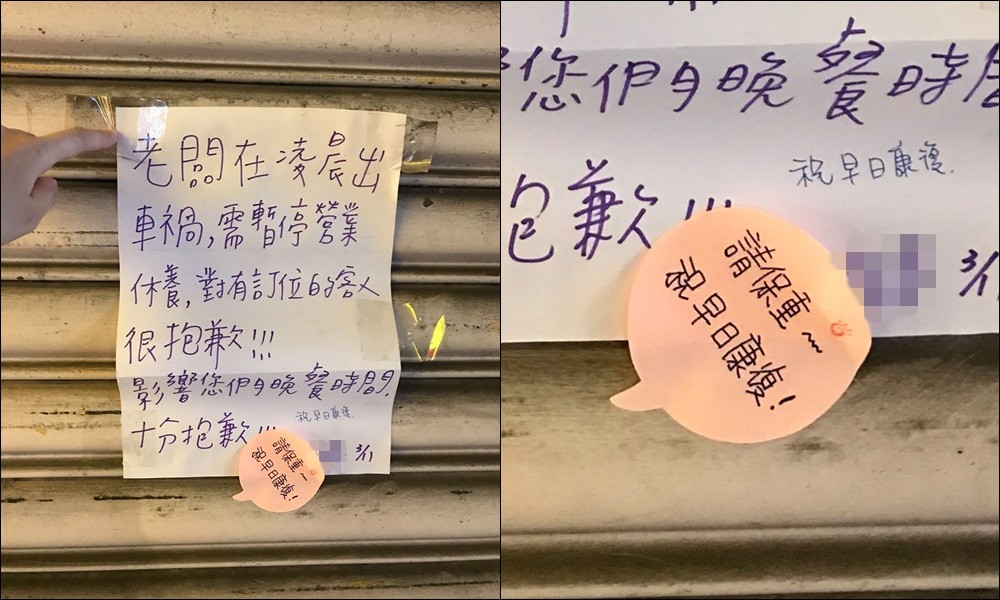 老闆在凌晨出
車禍,需暫停營業
休養,對有訂位的客人
很抱歉!!!
影響您們今晚餐時間.
十分抱歉!!!
祝早日康復.
3/1
請保重~
祝早日康復!
您們今晚餐時間
祝早日康復.
抱歉!!!
3/1
請保重~
祝早日康復!